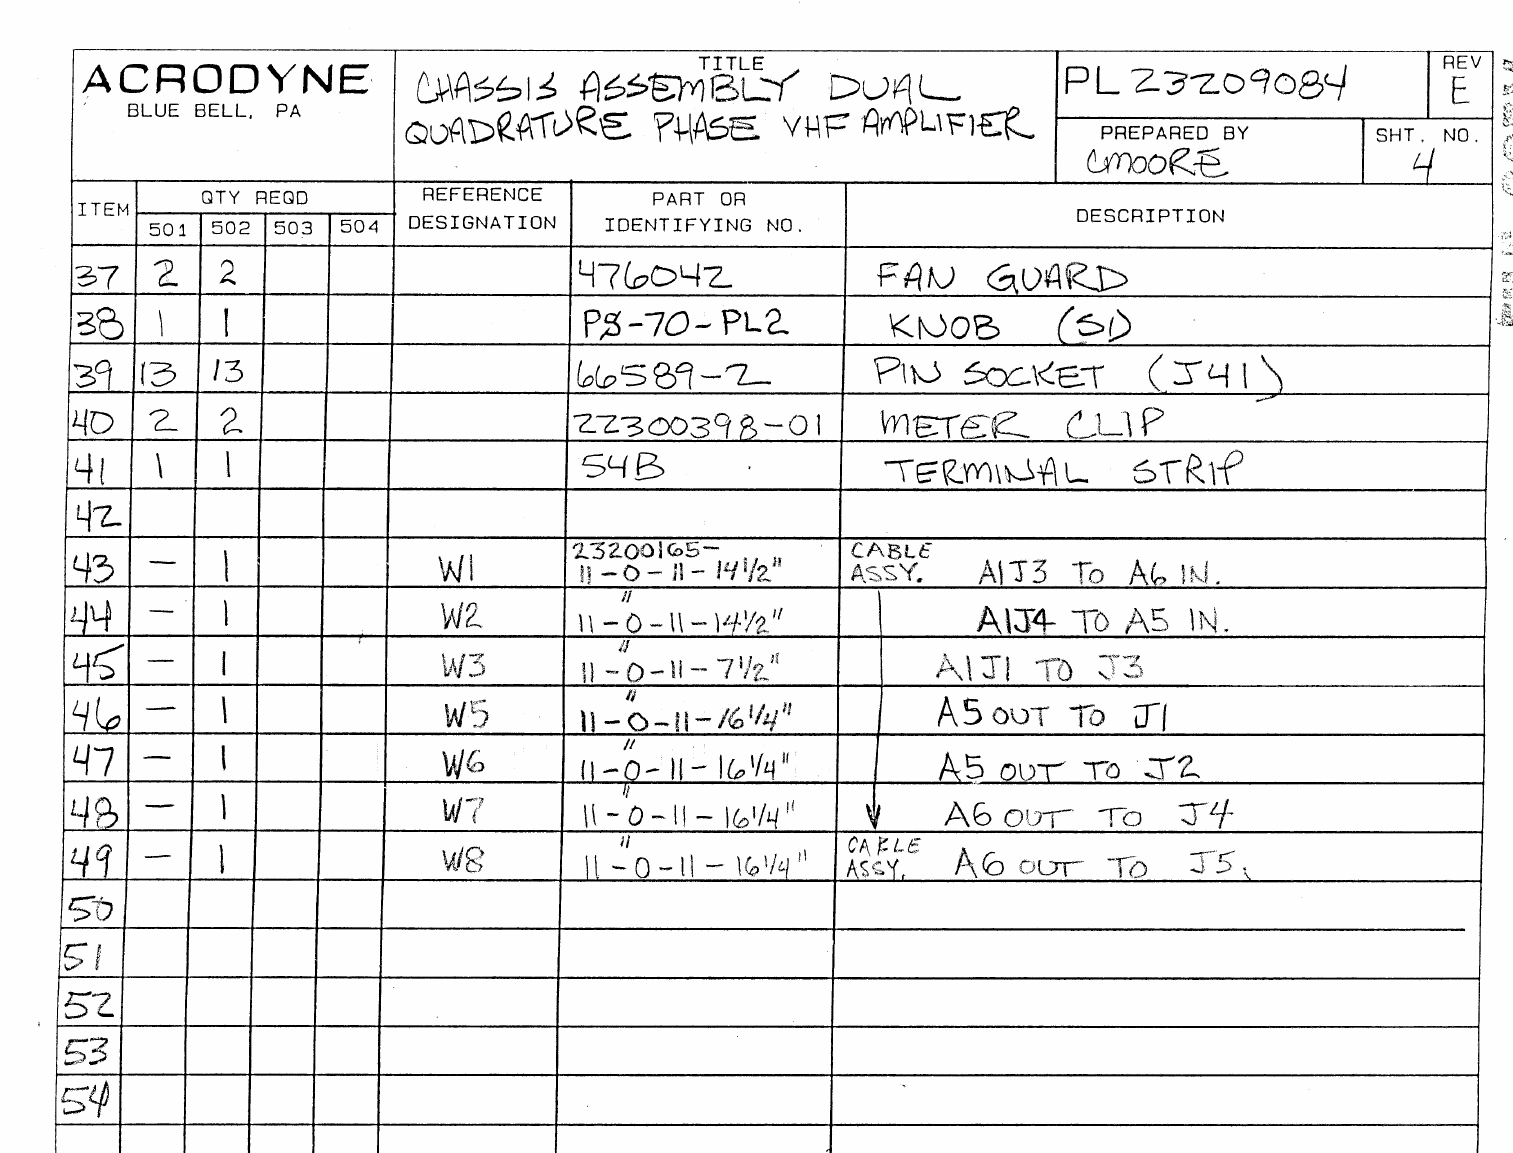 ACRODYNE
BLUE BELL, PA
TITLE
CHASSIS ASSEMBLY DUAL
QUADRATURE PHASE VHF AMPLIFIER
PL 23209084
REV
E
PREPARED BY
CMOORE
SHT. NO.
4
ITEM
QTY REQD
501 502 503 504
REFERENCE
DESIGNATION
PART OR
IDENTIFYING NO.
DESCRIPTION
37 2 2 476042 FAN GUARD
38 1 1 PS-70-PL2 KNOB (S1)
39 13 13 66589-2 PIN SOCKET (J41)
40 2 2 22300398-01 METER CLIP
41 1 1 54B TERMINAL STRIP
42
23200165- CABLE
43 — 1 W1 11-0-11-14 1/2" ASSY. A1J3 TO A6 IN.
"
44 — 1 W2 11-0-11-14 1/2" A1J4 TO A5 IN.
"
45 — 1 W3 11-0-11-7 1/2" A1J1 TO J3
"
46 — 1 W5 11-0-11-16 1/4" A5 OUT TO J1
"
47 — 1 W6 11-0-11-16 1/4" A5 OUT TO J2
"
48 — 1 W7 11-0-11-16 1/4" A6 OUT TO J4
" CABLE
49 — 1 W8 11-0-11-16 1/4" ASSY. A6 OUT TO J5.
50
51
52
53
54